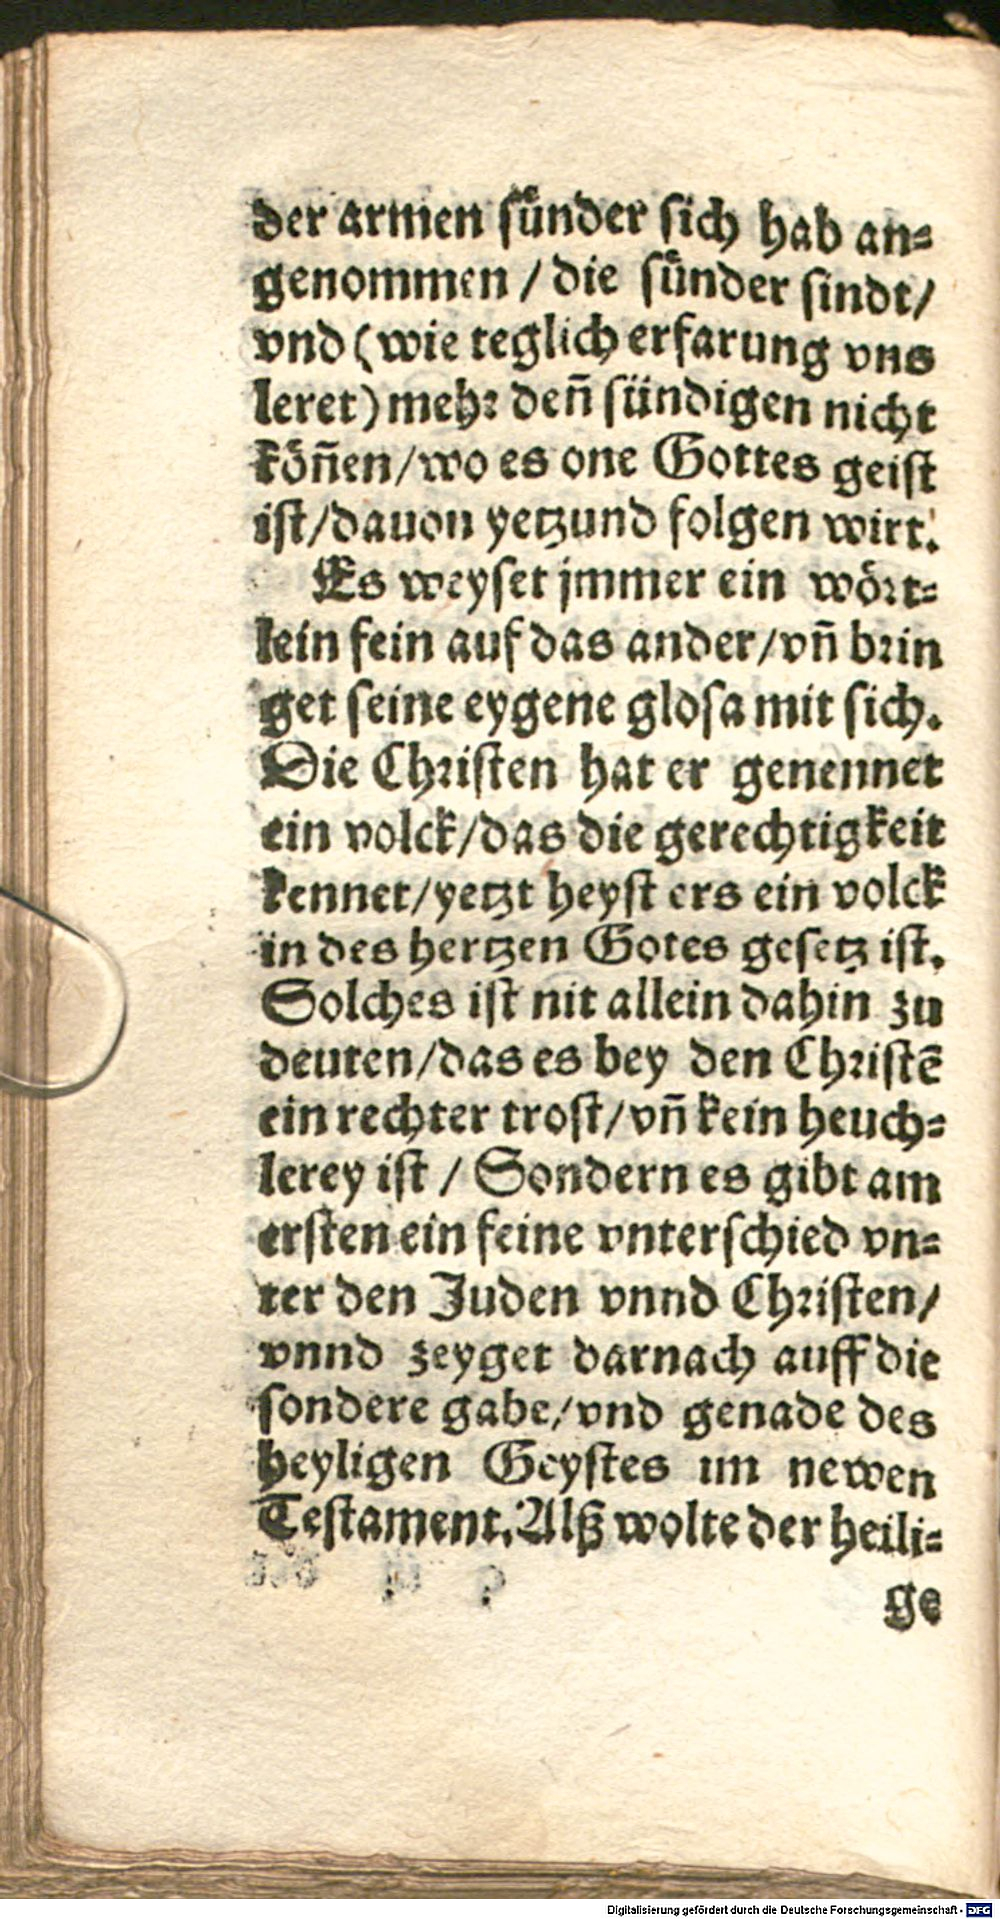 der armen ſuͤnder ſich hab an⸗
genommen / die ſuͤnder ſindt /
vnd (wie teglich erfarung vns
leret) mehꝛ deñ ſündigen nicht
koͤñen / wo es one Gottes geiſt
iſt / dauon yetzund folgen wirt.
Es weyſet jmmer ein woͤꝛt⸗
lein fein auf das ander / vñ bꝛin
get ſeine eygene gloſa mit ſich.
Die Chꝛiſten hat er genennet
ein volck / das die gerechtigkeit
kennet / yetzt heyſt ers ein volck
in des hertzen Gotes geſetz iſt.
Solches iſt nit allein dahin zu
deuten / das es bey den Chꝛiſtē
ein rechter troſt / vñ kein heuch⸗
lerey iſt / Sondern es gibt am
erſten ein feine vnterſchied vn⸗
ter den Juden vnnd Chꝛiſten /
vnnd zeyget darnach auff die
ſondere gabe / vnd genade des
heyligen Geyſtes im newen
Teſtament. Alß wolte der heili⸗
ge
Digitalisierung gefördert durch die Deutsche Forschungsgemeinschaft - DFG